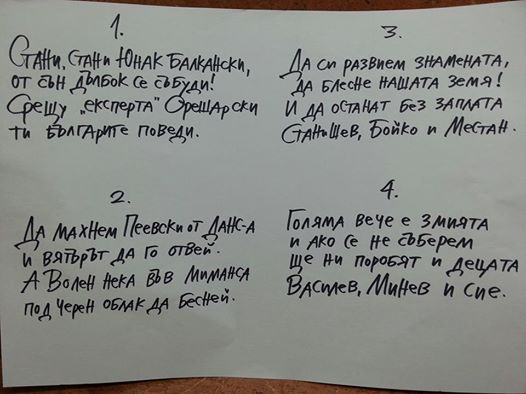 1.
Стани, стани Юнак Балкански,
от сън дълбок се събуди!
Срещу "експерта" Орешарски
ти българите поведи.
2.
Да махнем Пеевски от Данс-а
и вятърът да го отвей.
А Волен нека във Миманса
под черен облак да беснеЙ.
3.
Да си развием знамената,
да блесне нашата земя!
И да останат без заплата
Станишев, Бойко и Местан.
4.
Голяма вече е змията
и ако се не съберем
ще ни поробят и децата
Василев, Минев и Сие.